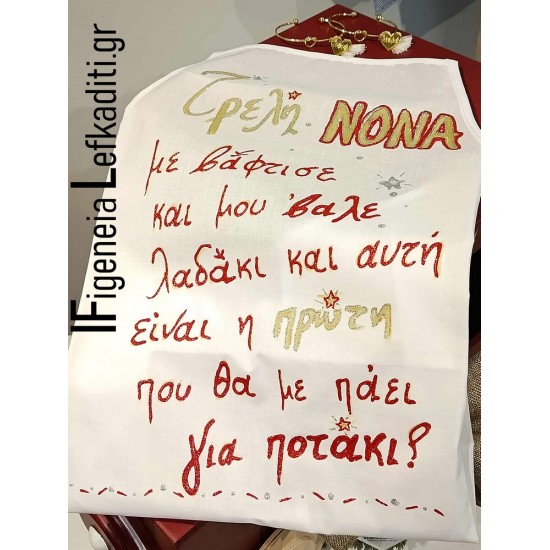 IFigeneia Lefkaditi.gr
Τρελή ΝΟΝΑ
με βάφτισε
και μου 'βαλε
λαδάκι και αυτή
είναι η πρώτη
που θα με πάει
για ποτάκι?